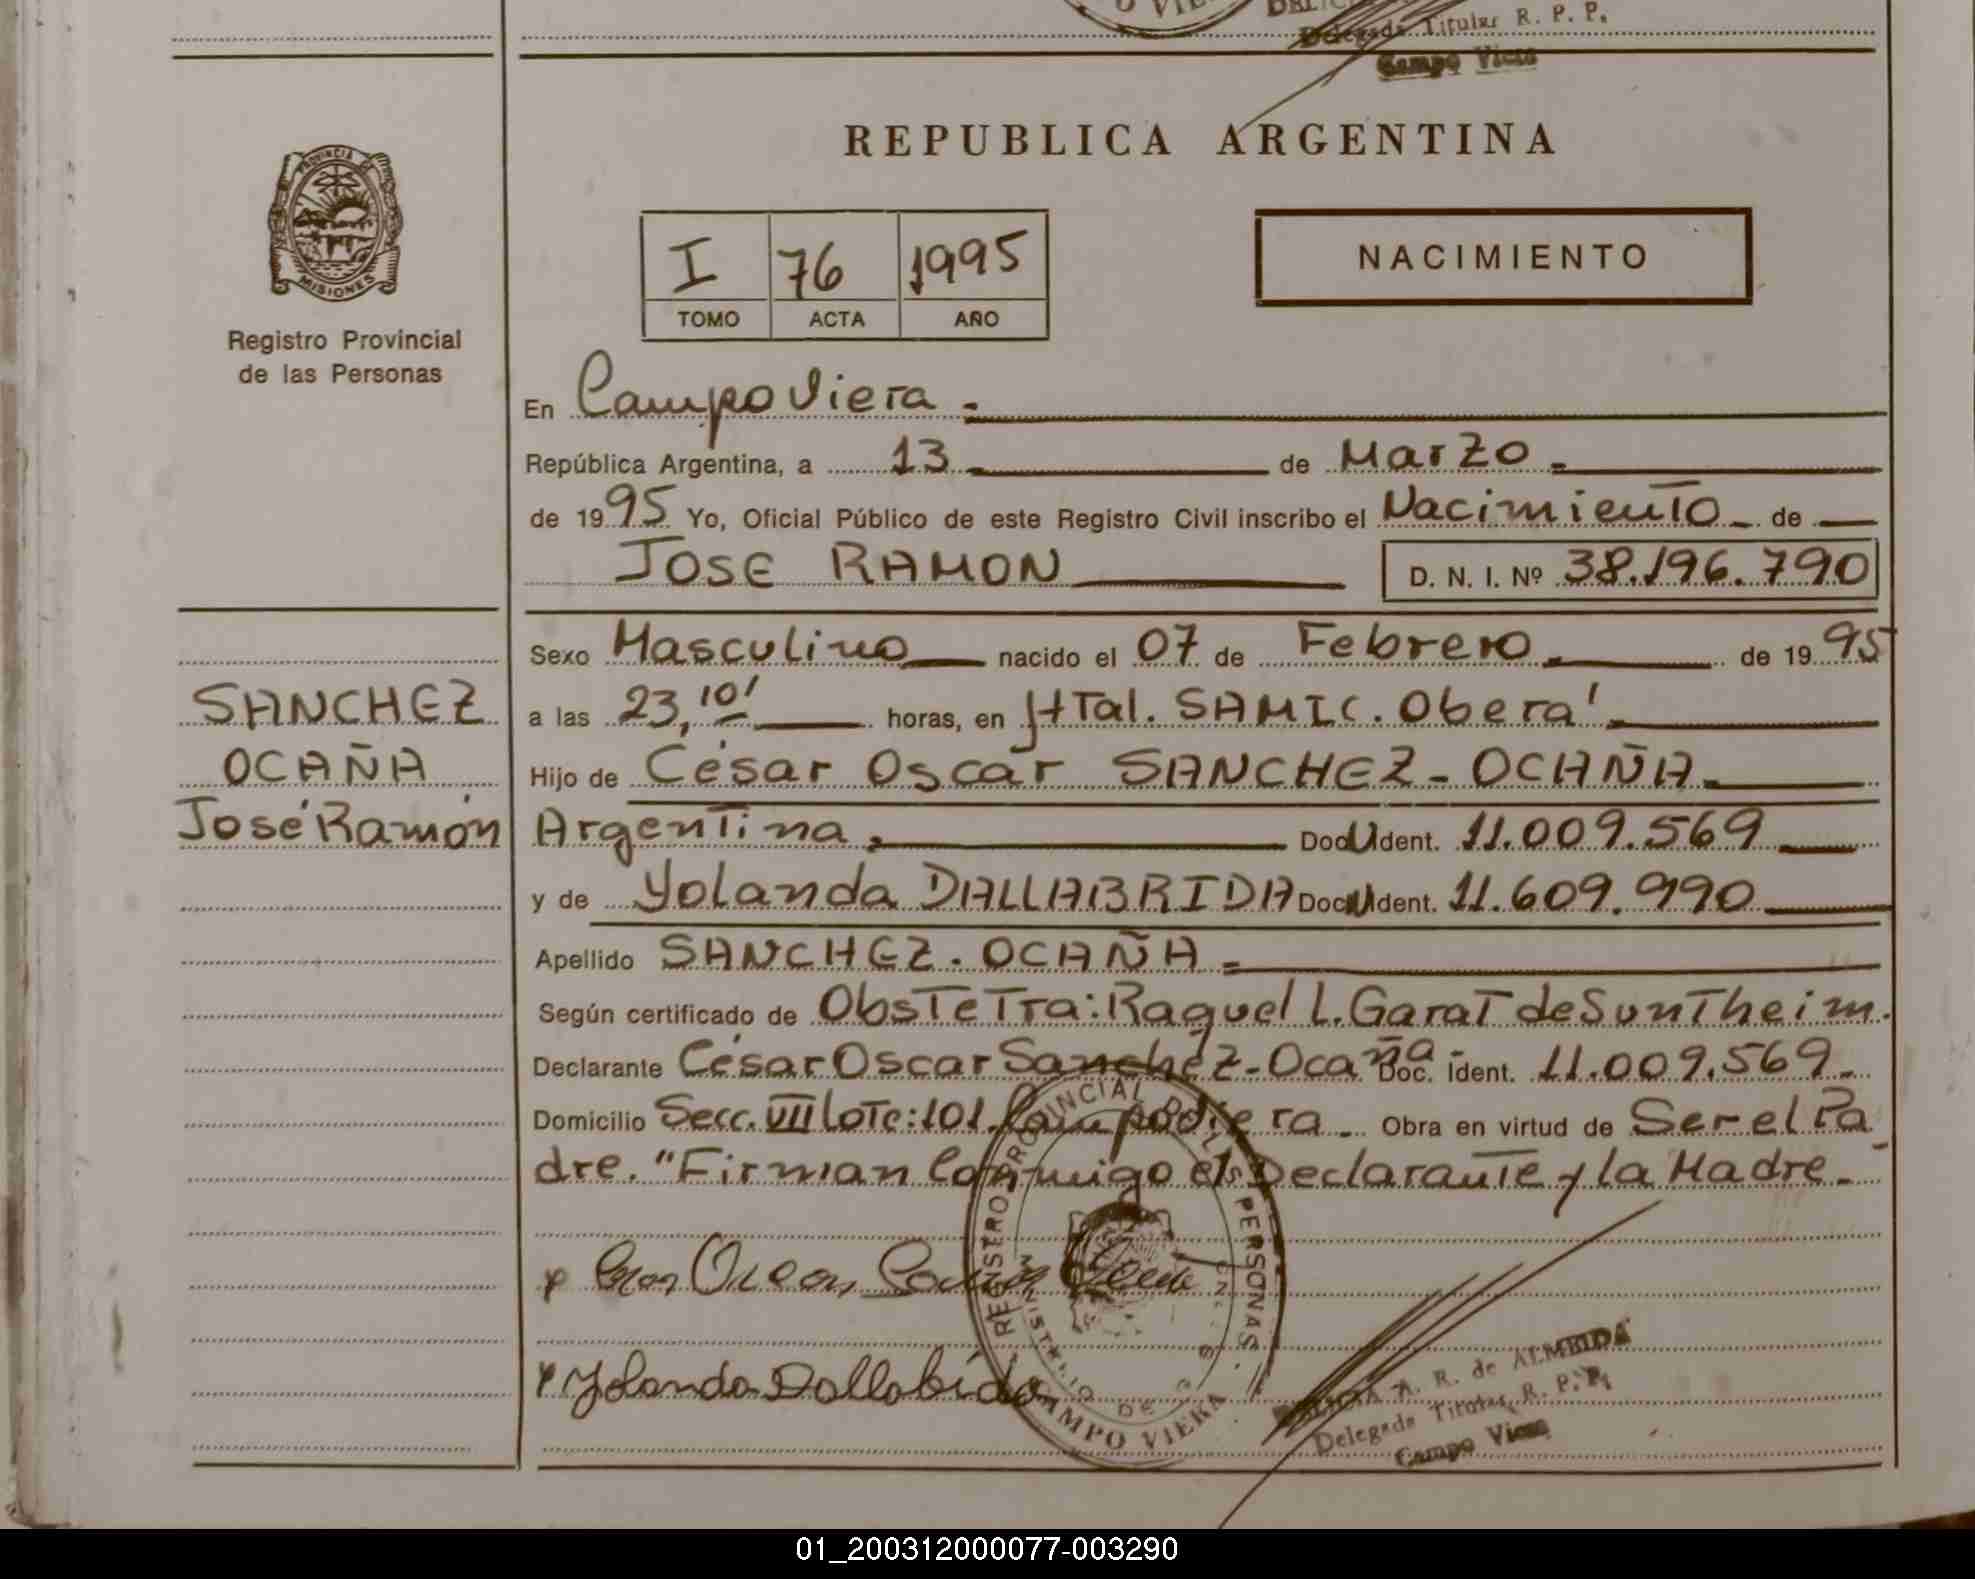 Delegada Titular R. P. P.
Campo Viera
REPUBLICA ARGENTINA
PROVINCIA DE MISIONES
Registro Provincial
de las Personas
I 76 1995
TOMO ACTA AÑO
NACIMIENTO
En Campo Viera.
República Argentina, a 13 de Marzo
de 1995 Yo, Oficial Público de este Registro Civil inscribo el Nacimiento de
JOSE RAMON D. N. I. Nº 38.196.790
Sexo Masculino nacido el 07 de Febrero de 1995
a las 23,10' horas, en HTal. SAMIC. Oberá
Hijo de César Oscar SANCHEZ-OCAÑA
Argentina, DocUIdent. 11.009.569
y de Yolanda DALLABRIDA DocUIdent. 11.609.990
Apellido SANCHEZ-OCAÑA
Según certificado de ObsTeTra: Raquel L. GaraT de SunTheim.
Declarante César Oscar Sanchez-Ocaña Doc. Ident. 11.009.569
Domicilio Secc. VII Lote: 101. Campo Viera. Obra en virtud de Ser el Pa
dre. "Firman Conmigo el Declarante y la Madre.
SANCHEZ
OCAÑA
José Ramón
REGISTRO PROVINCIAL DE LAS PERSONAS
MINISTERIO DE
CAMPO VIERA
Yolanda Dallabrida
A. R. de ALMEIDA
Delegada Titular R. P. P.
Campo Viera
01_200312000077-003290